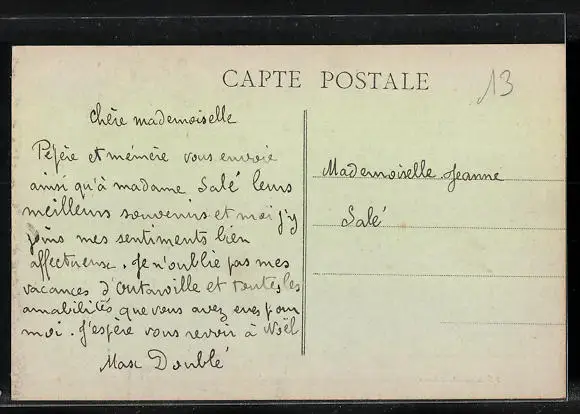 CARTE POSTALE
13
Chère mademoiselle
Pépère et mémère vous envoie
ainsi qu'à madame Salé leurs
meilleurs souvenirs et moi j'y
joins mes sentiments bien
affectueux. Je n'oublie pas mes
vacances d'Outarville et toutes les
amabilités que vous avez eues pour
moi. J'espère vous revoir à Noël
Max Doublé
Mademoiselle Jeanne
Salé